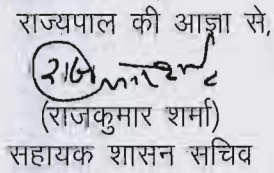 राज्यपाल की आज्ञा से,
(राजकुमार शर्मा)
सहायक शासन सचिव